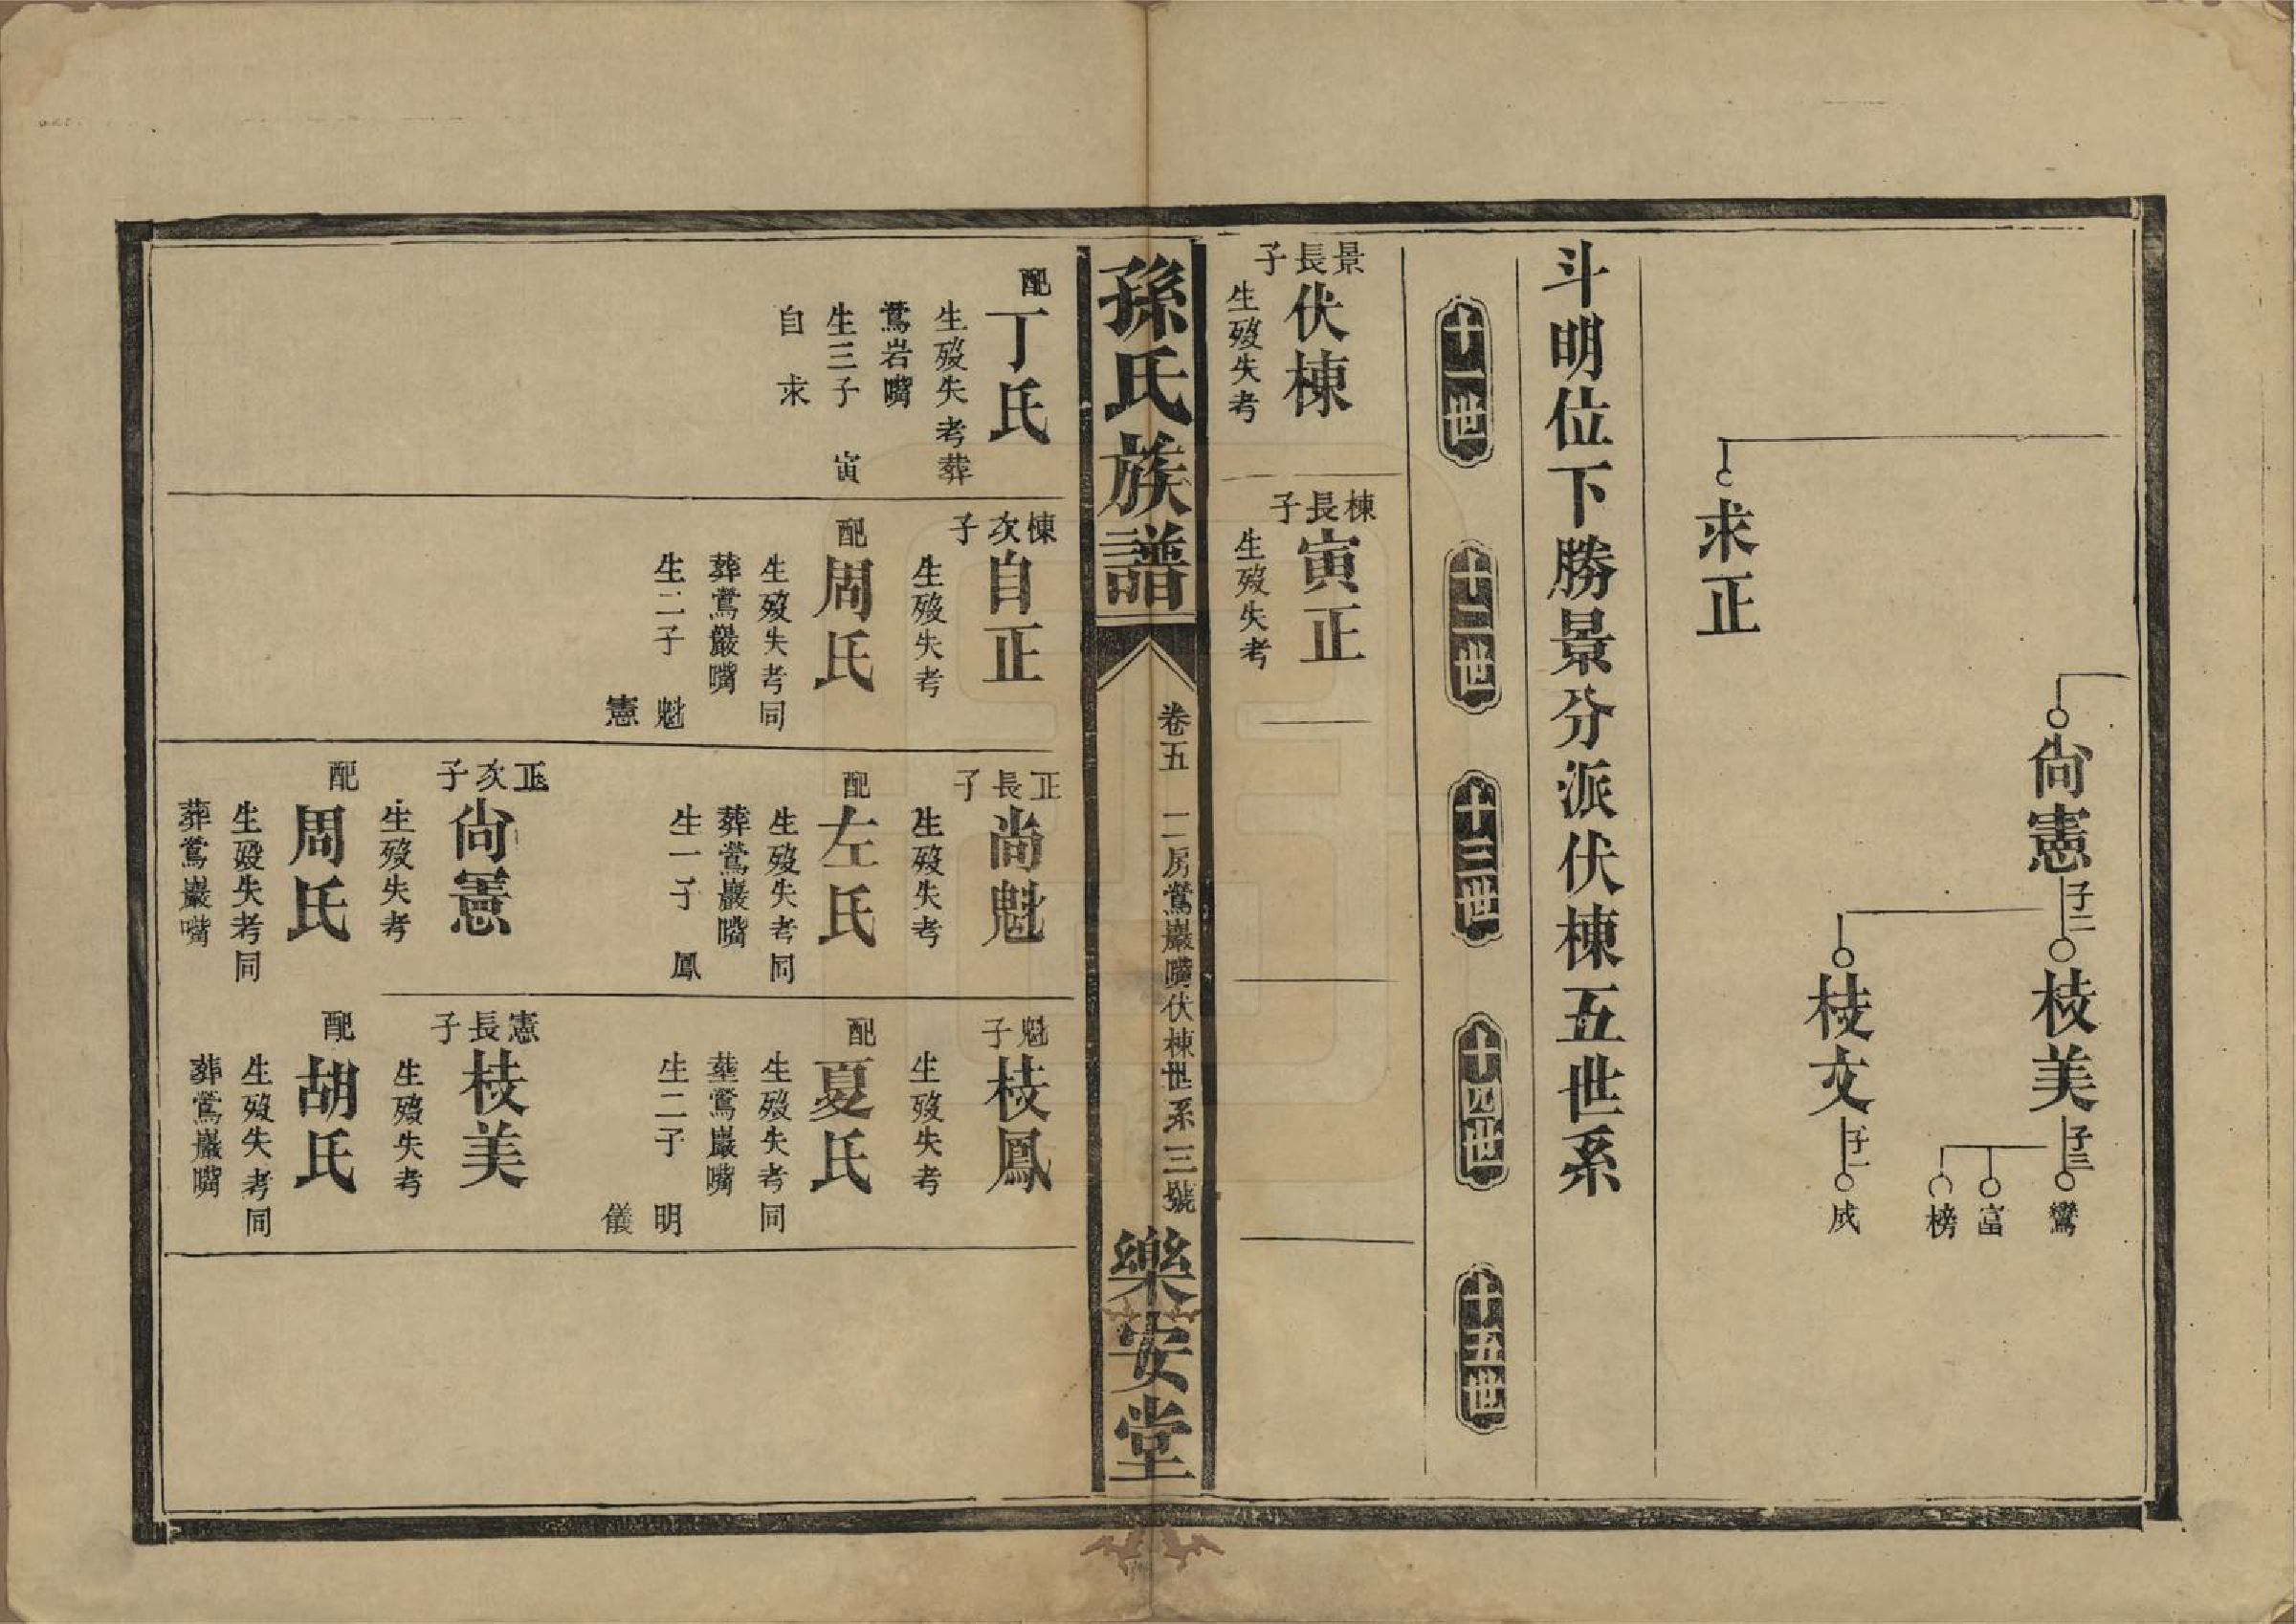 求正
尙憲 子二
枝美 子三
鸞
富
榜
枝文 子一
成
斗明位下勝景分派伏棟五世系
十一世
十二世
十三世
十四世
十五世
景長子
伏棟
生殁失考
棟長子
寅正
生殁失考
孫氏族譜
卷五
二房鶯巖嘴伏棟世系三號
樂安堂
配
丁氏
生殁失考葬
鶯岩嘴
生三子 寅
自 求
棟次子
自正
生殁失考
配
周氏
生殁失考同
葬鶯巖嘴
生二子 魁
憲
正長子
尙魁
生殁失考
配
左氏
生殁失考同
葬鶯巖嘴
生一子 鳳
正次子
尙憲
生殁失考
配
周氏
生殁失考同
葬鶯巖嘴
魁子
枝鳳
生殁失考
配
夏氏
生殁失考同
葬鶯巖嘴
生二子 明
儀
憲長子
枝美
生殁失考
配
胡氏
生殁失考同
葬鶯巖嘴